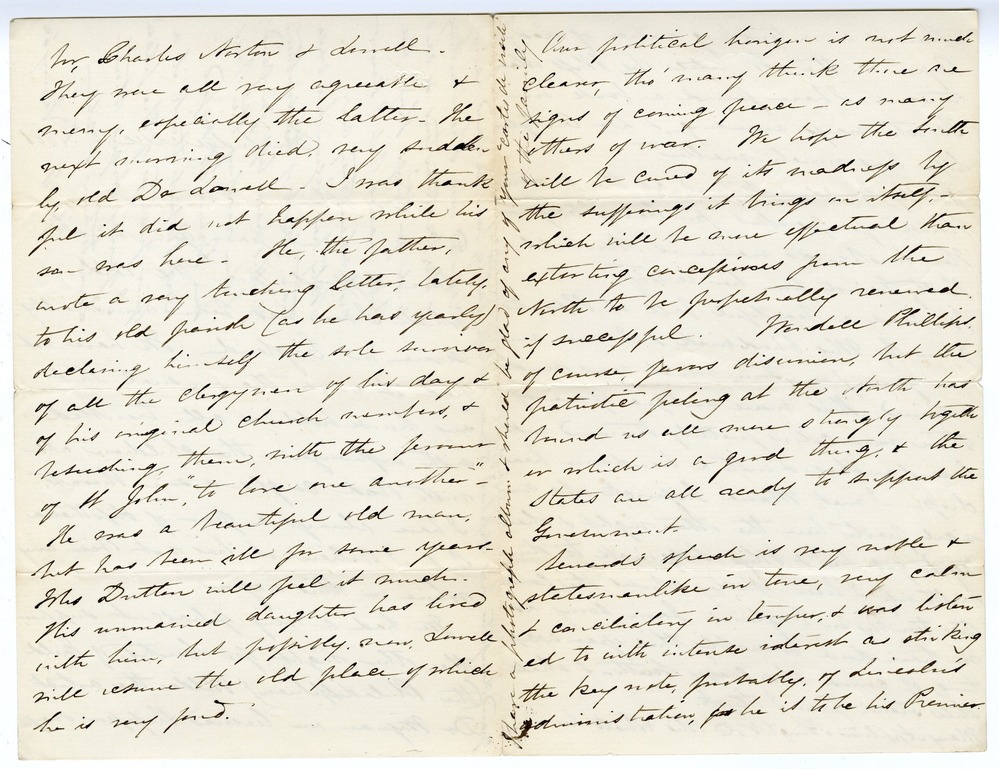 Mr. Charles Norton & Lowell.
They were all very agreeable &
merry, especially the latter. The
next morning died, very sudden
ly old Dr Lowell. I was thank
ful it did not happen while his
son was here. He, the father,
wrote a very touching letter, lately,
to his old parish (as he has yearly)
declaring himself the sole survivor
of all the clergymen of his day &
of his original church members, &
beseeching them, with the fervour
of St John, "to love one another" -
He was a beautiful old man,
but has been ill for some years.
Mrs Dutton will feel it much.
His unmarried daughter has lived
with him, but possibly, now, Lowell
will resume the old place of which
he is very fond.
I have a photograph album & should be glad of any of your cartes de visite
of the family
Our political horizon is not much
clearer, tho' many think there are
signs of coming peace - as many
others of war. We hope the South
will be cured of its madness by
the sufferings it brings on itself,-
which will be more effectual than
extorting concessions from the
North to be perpetually renewed,
if successful. Wendell Phillips,
of course, favors disunion, but the
patriotic feeling at the North has
bound us all more strongly togeth
er which is a good thing, & the
States are all ready to support the
Government.
Seward's speech is very noble &
statesmanlike in tone, very calm
& conciliatory in temper, & was listen
ed to with intense interest as striking
the key note, probably, of Lincoln's
administration, as he is to be his Premier